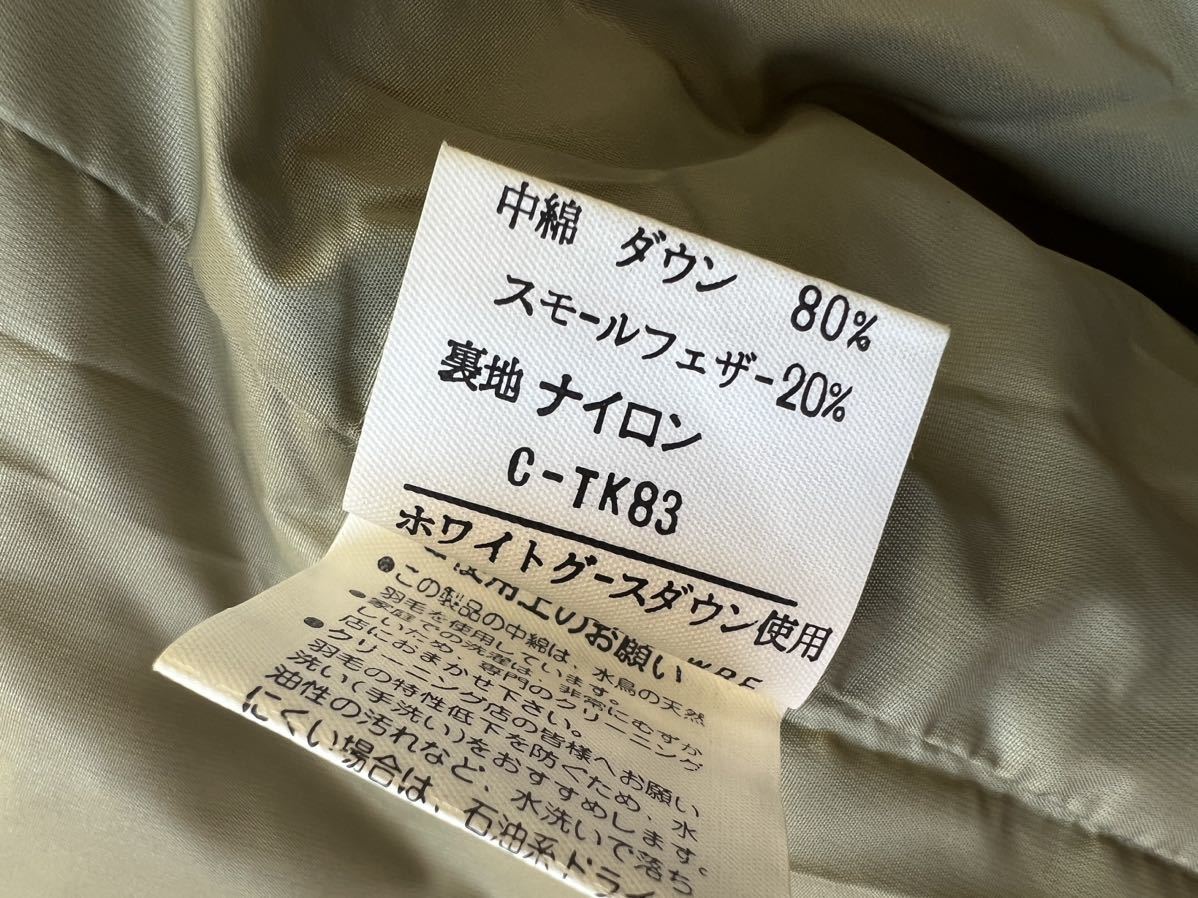 中綿 ダウン 80%
スモールフェザー20%
裏地 ナイロン
C-TK83
ホワイトグースダウン使用
のお願い
●この製品の中綿は、水鳥の天然
羽毛を使用しています。
●家庭での洗濯は、非常にむずか
しいため、専門のクリーニング
店におまかせ下さい。
●クリーニング店の皆様へお願い
羽毛の特性低下を防ぐため、水
洗い(手洗い)をおすすめします。
油性の汚れなど、水洗いで落ち
にくい場合は、石油系ドライ